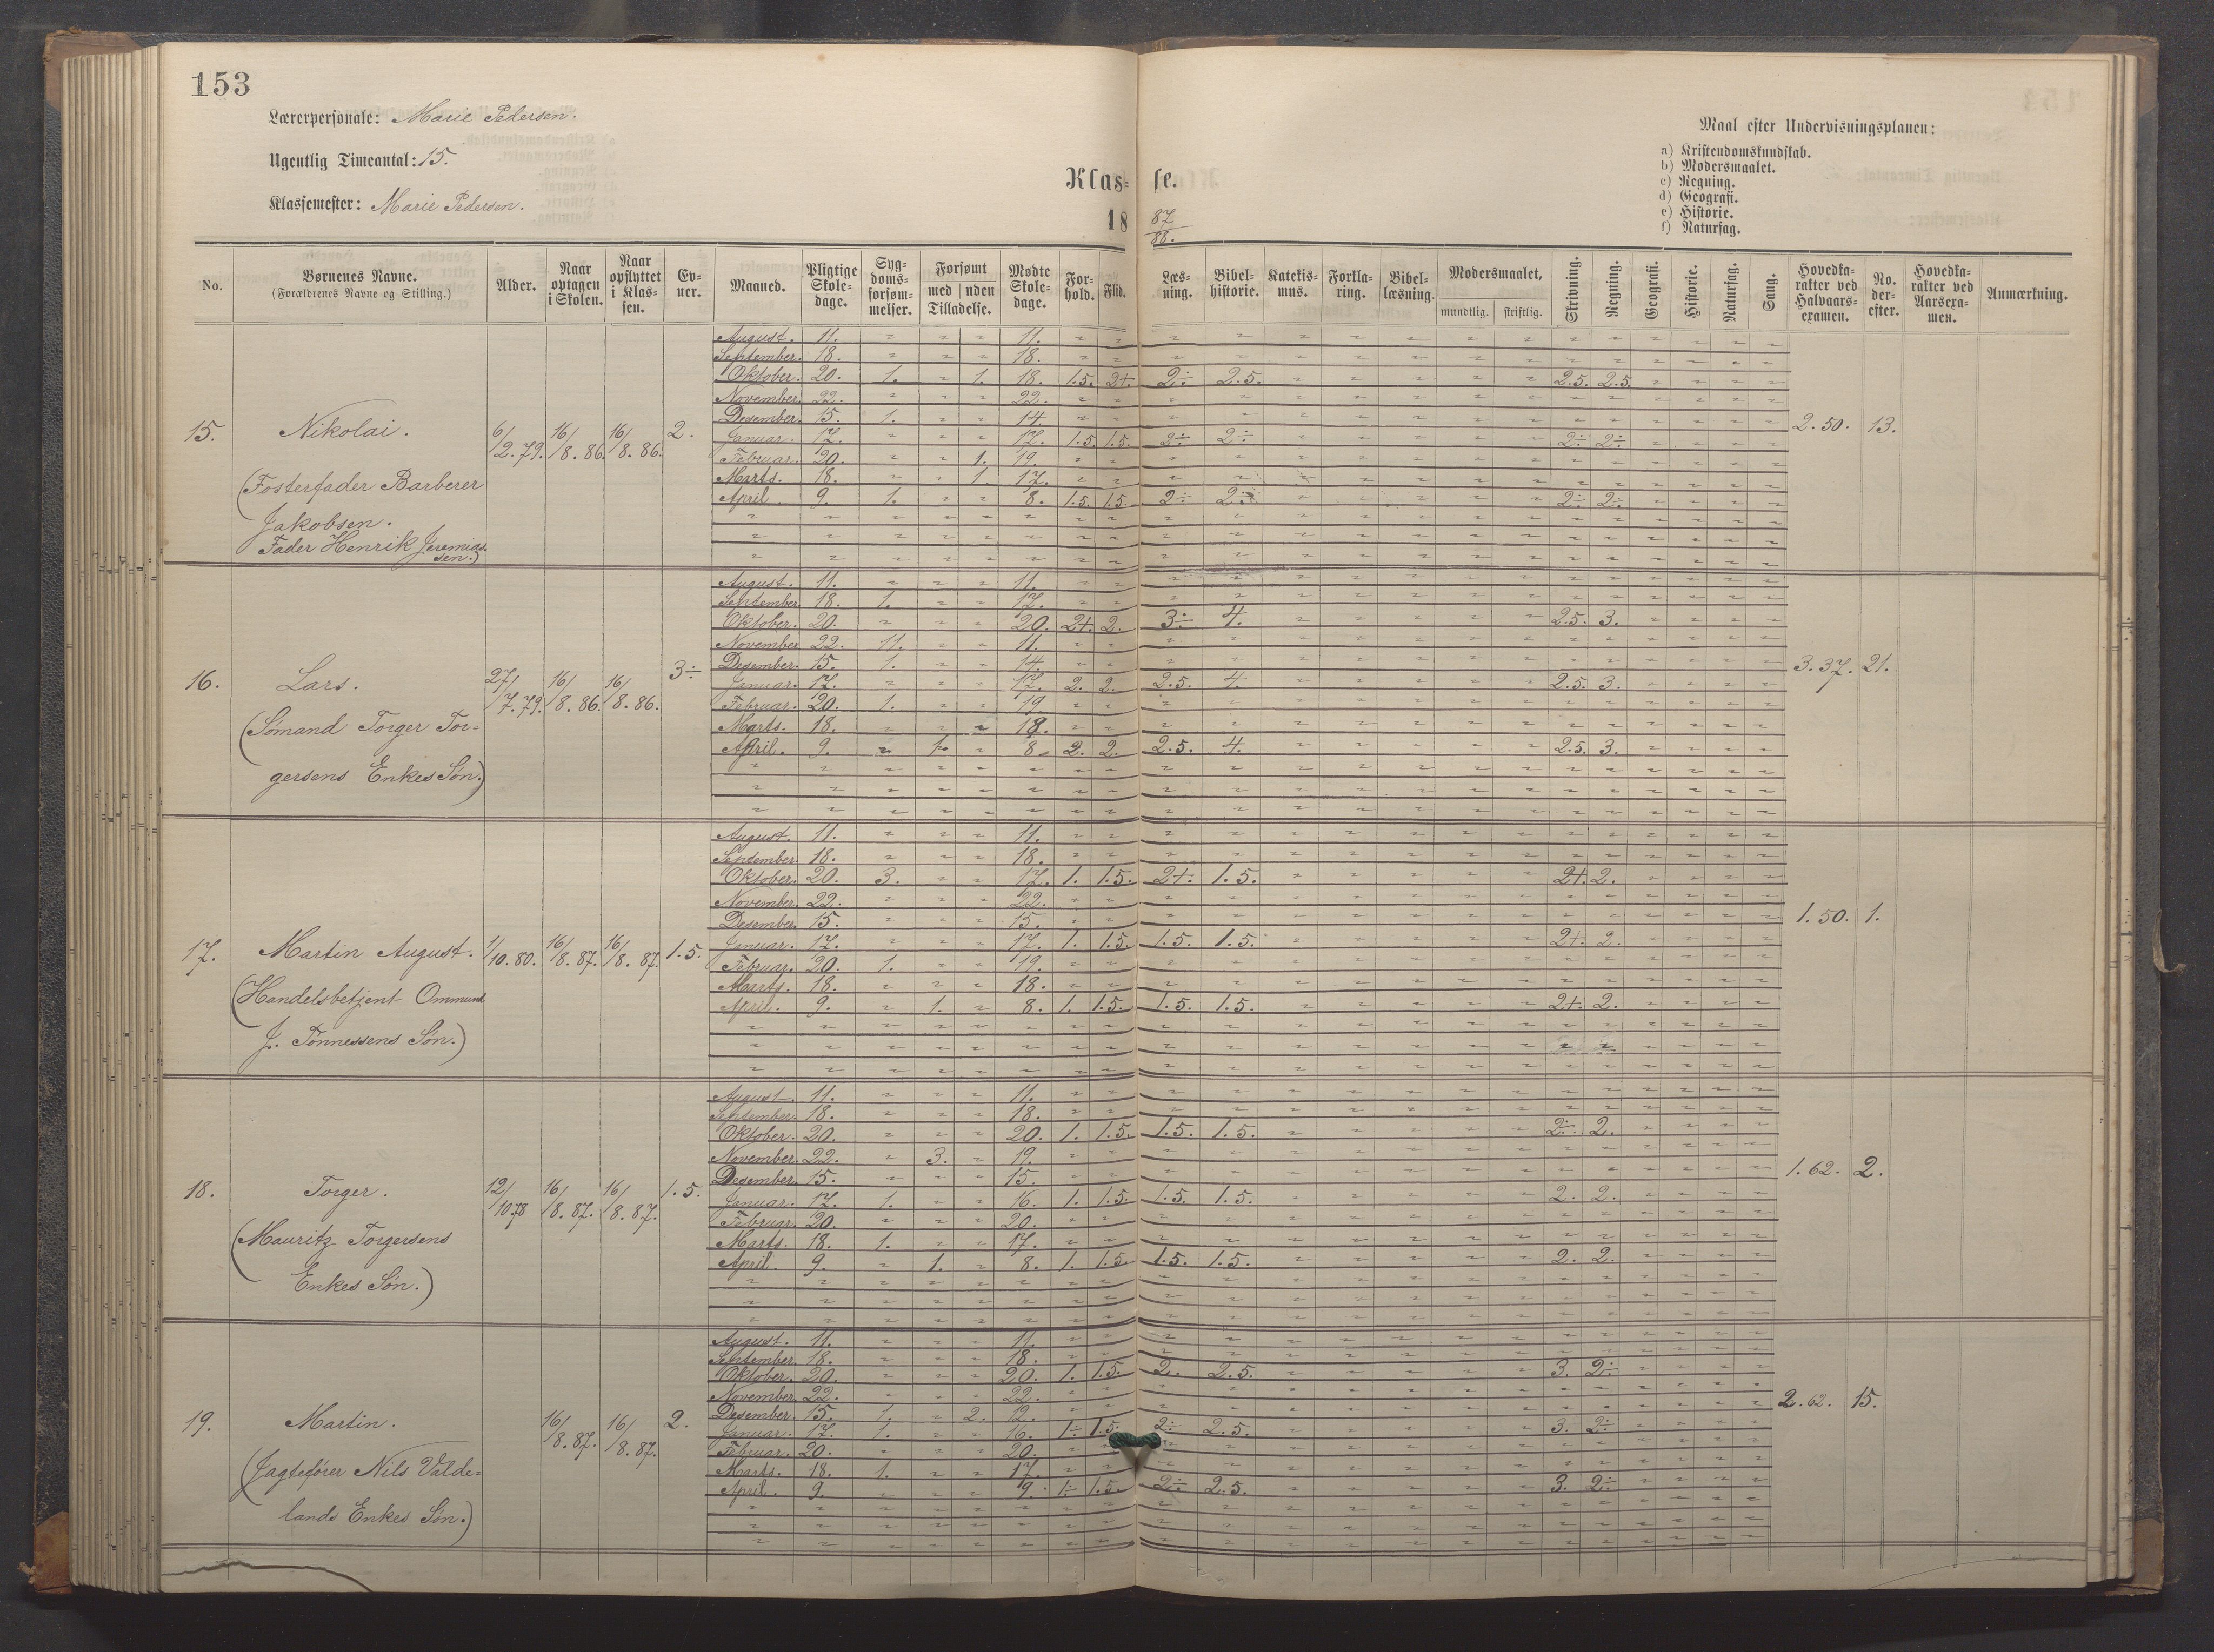 153
Lærerpersonale: Marie Pedersen.
Ugentlig Timeantal: 15.
Klassemester: Marie Pedersen.
Klas- se.
18 87/88.
Maal efter Undervisningsplanen:
a) Kristendomskundskab.
b) Modersmaalet.
c) Regning.
d) Geografi.
e) Historie.
f) Naturfag.
No. | Børnenes Navne. (Forældrenes Navne og Stilling.) | Alder. | Naar optagen i Skolen. | Naar opflyttet i Klassen. | Evner. | Maaned. | Pligtige Skoledage. | Sygdomsforsømmelser. | Forsømt med uden Tilladelse. | Mødte Skoledage. | Forhold. | Flid. | Læsning. | Bibelhistorie. | Katekismus. | Forklaring. | Bibellæsning. | Modersmaalet, mundtlig. skriftlig. | Skrivning. | Regning. | Geografi. | Historie. | Naturfag. | Sang. | Hovedkarakter ved Halvaarsexamen. | No. derefter. | Hovedkarakter ved Aarsexamen. | Anmærkning.
15. Nikolai. 6/2.79. 16/8.86. 16/8.86. 2. 2.50. 13.
(Fosterfader Barberer
Jakobsen.
Fader Henrik Jeremiassen.)
August. 11. " " " 11. " "
September. 18. " " " 18. " "
Oktober. 20. 1. " 1. 18. 1.5. 2+. 2÷. 2.5. 2.5. 2.5.
November. 22. " " " 22. " "
Desember. 15. 1. " " 14. " "
Januar. 17. " " " 17. 1.5. 1.5. 2÷ 2÷ 2÷ 2÷
Februar. 20. " " 1. 19. " "
Marts. 18. " " 1. 17. " "
April 9. 1. " " 8. 1.5. 1.5. 2÷ 2÷ 2÷ 2÷
16. Lars. 27/7.79. 16/8.86. 16/8.86. 3÷ 3.37. 21.
(Sømand Torger Tor-
gersens Enkes Søn.)
August. 11. " " " 11. " "
September. 18. 1. " " 17. " "
Oktober. 20. " " " 20. 2+. 2. 3÷ 4. 2.5. 3.
November 22. 11. " " 11. " "
Desember. 15. 1. " " 14. " "
Januar. 17. " " " 17. 2. 2. 2.5. 4. 2.5. 3.
Februar. 20. 1. " " 19. " "
Marts. 18. " " " 18. " "
April. 9. " 1. " 8. 2. 2. 2.5. 4. 2.5. 3.
17. Martin August. 1/10.80. 16/8.87. 16/8.87. 1.5. 1.50. 1.
(Handelsbetjent Ommund
J. Tønnessens Søn.)
August. 11. " " " 11. " "
September. 18. " " " 18. " "
Oktober. 20. 3. " " 17. 1. 1.5. 2+. 1.5. 2+. 2.
November. 22. " " " 22. " "
Desember. 15. " " " 15. " "
Januar. 17. " " " 17. 1. 1.5. 1.5. 1.5. 2+. 2.
Februar. 20. 1. " " 19. " "
Marts. 18. " " " 18. " "
April. 9. " 1. " 8. 1. 1.5. 1.5. 1.5. 2+. 2.
18. Torger. 12/10.78 16/8.87. 16/8.87. 1.5. 1.62. 2.
(Mauritz Torgersens
Enkes Søn.)
August. 11. " " " 11. " "
September. 18. " " " 18. " "
Oktober. 20. " " " 20. 1. 1.5. 1.5. 1.5. 2÷. 2.
November. 22. " 3. " 19. " "
Desember. 15. " " " 15. " "
Januar. 17. 1. " " 16. 1. 1.5. 1.5. 1.5. 2. 2.
Februar. 20. " " " 20. " "
Marts. 18. 1. " " 17. " "
April. 9. " 1. " 8. 1. 1.5. 1.5. 1.5. 2. 2.
19. Martin. 16/8.87. 16/8.87. 2. 2.62. 15.
(Jagtefører Nils Valde-
lands Enkes Søn.)
August. 11. " " " 11. " "
September. 18. " " " 18. " "
Oktober. 20. " " " 20. 1. 1.5. 2. 2.5. 3. 2÷
November. 22. " " " 22. " "
Desember. 15. 1. " 2. 12. " "
Januar. 17. 1. " " 16. 1÷ 1.5. 2÷ 2.5. 3. 2÷
Februar. 20. " " " 20. " "
Marts. 18. 1. " " 17. " "
April. 9. " " " 9. 1÷ 1.5. 2÷ 2.5. 3. 2÷